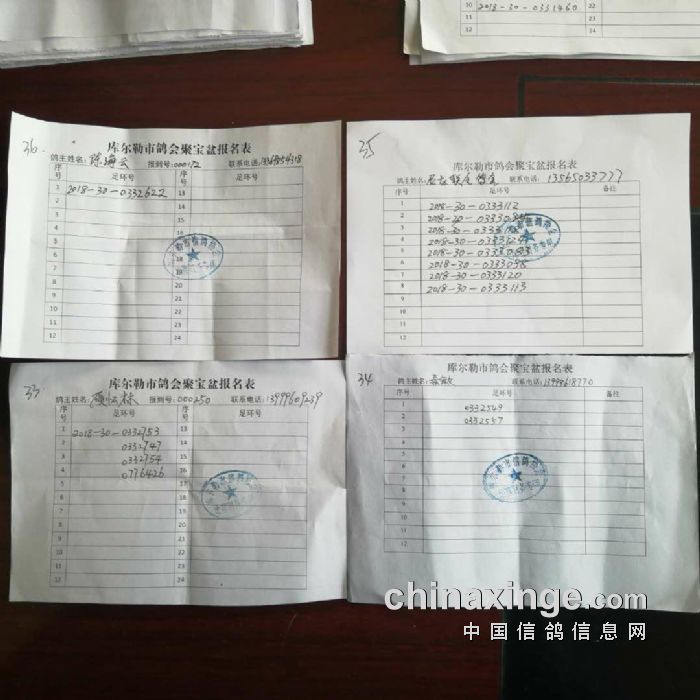 10 2018-30-0331460 22
11 23
12
36.
库尔勒市鸽会聚宝盆报名表
鸽主姓名: 陈海云 报到号:000112 联系电话:
序号 足环号 序号 足环号
1 2018-30-0332622 13
2 14
3 15
4
5
6 18
7 19
8 20
9 21
10 22
11 23
12 24
35
库尔勒市鸽会聚宝盆报名表
鸽主姓名: 联系电话: 13565033777
序号 足环号 备注
1 2018-30-0333112
2 2018-30-
3 2018-30-
4 2018-30-
5 2018-30-
6 2018-30-0333098
7 2018-30-0333120
8 2018-30-0333113
9
10
11
12
33
库尔勒市鸽会聚宝盆报名表
鸽主姓名: 报到号:000250 联系电话:13999609239
序号 足环号 序号 足环号
1 2018-30-0332753 13
2 0332747 14
3 0332754 15
4 0776426 16
5
6 18
7 19
8 20
9 21
10 22
11 23
12 24
34
库尔勒市鸽会聚宝盆报名表
鸽主姓名: 联系电话: 13999618770
序号 足环号 备注
1 0332549
2 0332557
3
4
5
6
7
8
9
10
11
12
chinaxinge.com
中国信鸽信息网